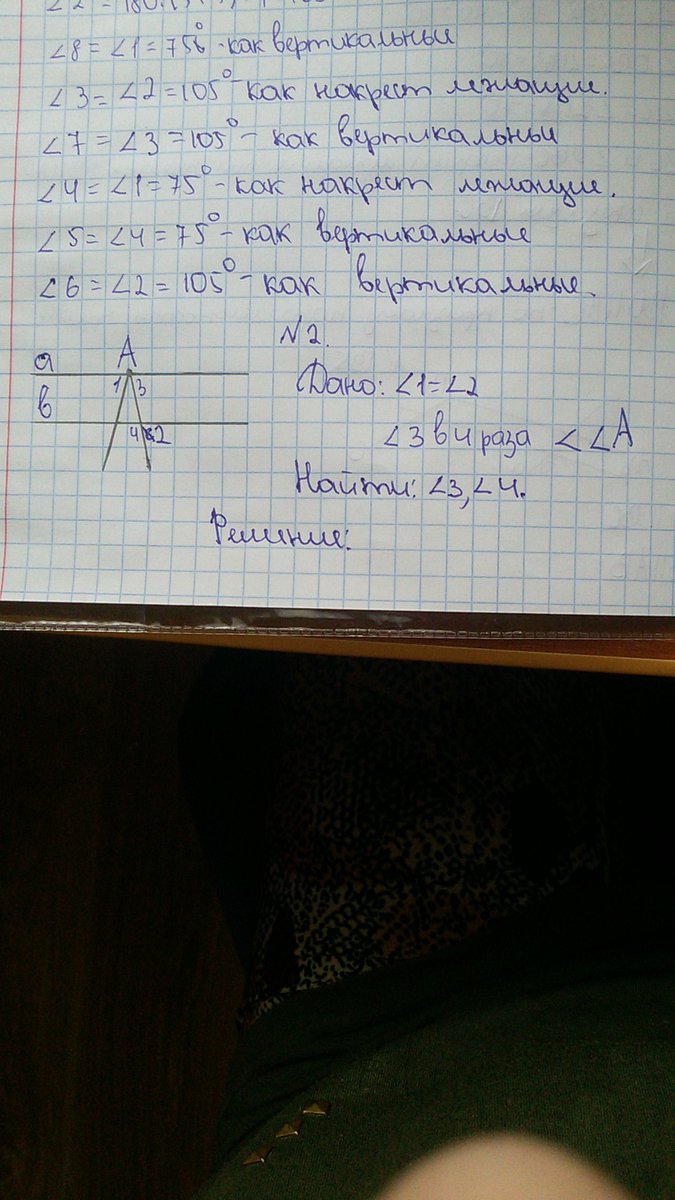 ∠2 = 180
∠8 = ∠1 = 75° - как вертикальны
∠3 = ∠2 = 105° - как накрест лежащие.
∠7 = ∠3 = 105° - как вертикальны
∠4 = ∠1 = 75° - как накрест лежащие.
∠5 = ∠4 = 75° - как вертикальные
∠6 = ∠2 = 105° - как вертикальные.
N2.
a A
1 3
в
4 2
Дано: ∠1 = ∠2
∠3 в 4 раза < ∠A
Найти: ∠3, ∠4.
Решение: